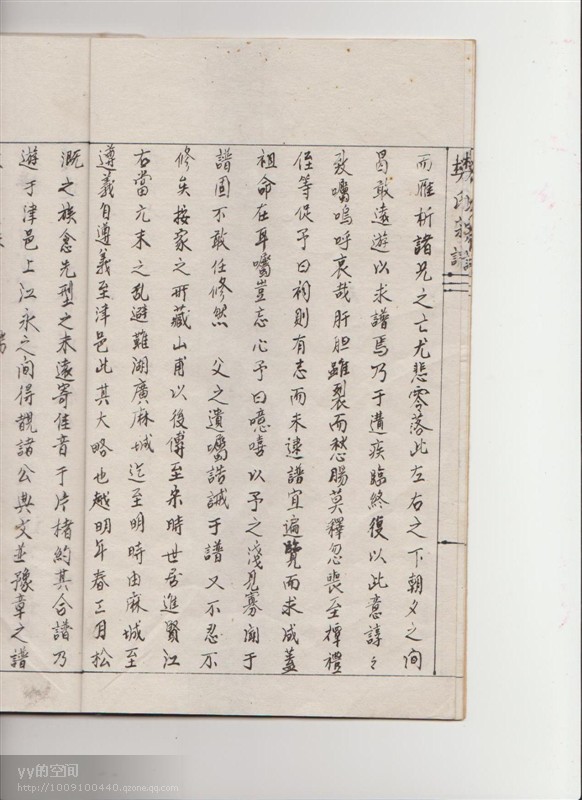 樊氏族譜
而雁析諸兄之亡尤悲零落此左右之下朝夕之间
曷敢遠遊以求譜焉乃于遭疾臨終復以此意諄々
致囑嗚呼哀哉肝胆雖裂而愁腸莫釋忽喪至禫禮
侄等促予曰祠則有志而未逮譜宜遍覽而求成蓋
祖命在耳囑豈忘心予曰噫嘻以予之淺見寡闻于
譜固不敢任修然 父之遺囑諮誡于譜又不忍不
修矣按家之所藏山甫以後傳至宋時世居進賢江
右當元末之乱避難湖廣麻城迄至明時由麻城至
遵義自遵義至津邑此其大略也越明年春三月松
溉之族念先型之未遠寄佳音于片楮約其合譜乃
遊于津邑上江永之间得覩諸公典文並豫章之譜
yy的空间
http://1009100440.qzone.qq.com